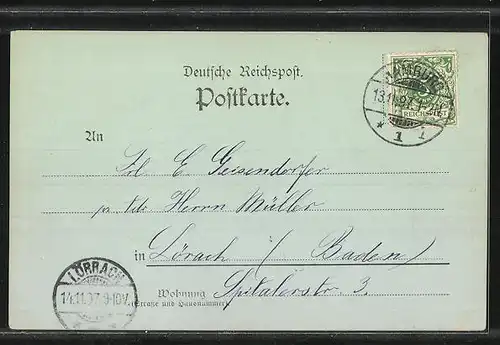 Deutsche Reichspost.
Postkarte.
HAMBURG
13.11.97
* 1 1
REICHSPOST
An
Frl. E Geisendorfer
Herrn Müller
in Lörach / Baden /
LÖRRACH
14.11.97. 9-10V.
Wohnung Spitalerstr. 3.
(Straße und Hausnummer)